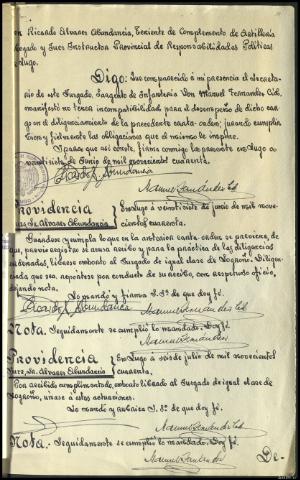 on Ricardo Alvares Abundancia, Teniente de Complemento de Artillería
Abogado y Juez Instructor Provincial de Responsabilidades Políticas
Lugo.
Digo: Que comparecido á mi presencia el Secretario
de este Juzgado, Sargento de Infantería Don Manuel Fernandez Cid,
manifestó no tener incompatibilidad para el desempeño de dicho cargo
en el diligenciamiento de la precedente carta-orden; jurando cumplir
bien y fielmente las obligaciones que el mismo le impone.
Y para que así conste, firmo conmigo la presente en Lugo a
veintiseis de Junio de mil novecientos cuarenta.
Ricardo J. Abundancia
Manuel Fernandez Cid
Providencia
Juez, Sr. Alvares Abundancia
En Lugo a veintiseis de junio de mil novecientos
cuarenta.
Guardese y cumpla lo que en la anterior carta-orden se previene,
que, previo registro se acusa recibo y para la práctica de las diligencias
ordenadas, librese exhorto al Juzgado de igual clase de Logroño. Diligenciada
que sea, repórtese por conducto de su recibo, con respetuoso oficio,
dejando nota.
Lo mandó y firma S.Sª de que doy fé.
Ricardo J. Abundancia
Manuel Fernandez Cid
Nota. Seguidamente se cumplió lo mandado. Doy fé.
Manuel Fernandez
Providencia
Juez, Sr. Alvares Abundancia
En Lugo á seis de julio de mil novecientos
cuarenta.
Por recibido cumplimentado, exhorto librado al Juzgado de igual clase de
Logroño, unase á estas actuaciones.
Lo mandó y rubrica S. Sª de que doy fé.
Manuel Fernandez Cid
Nota. Seguidamente se cumplió lo mandado. Doy fé.
Manuel Fernandez
De-